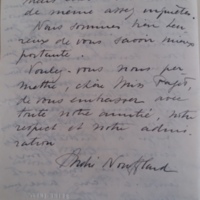 de même assez inquiets.
Nous sommes bien heu-
reux de vous savoir mieux
portante.
Voulez-vous nous per
mettre, chère Miss
de vous embrasser avec
toute notre amitié, notre
respect et notre admi-
ration
André Noufflard